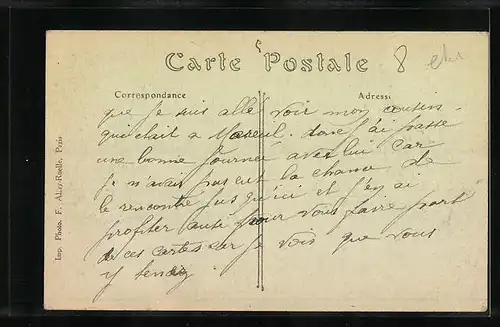 Carte Postale
8
Correspondance
Adresse
que je suis allé voir mon cousin
qui était a Mareuil. donc j'ai passé
une bonne journée avec lui car
je n'avais pas eut la chance de
le rencontré jusqu'ici et j'en ai
profiter aussi pour vous faire part
de ces cartes car je vois que vous
y tenez
Imp. Photo. F. Aliry-Ruelle, Paris